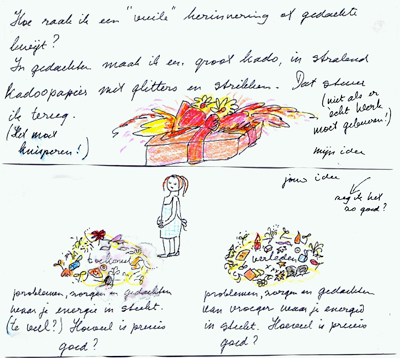 Hoe raak ik een "vuile" herinnering of gedachte
kwijt?
In gedachten maak ik een groot kado, in stralend
kadoopapier met glitters en strikken. Dat stuur
ik terug.
(Het moet
knisperen!)
(niet als er
echt werk
moet gebeuren!)
mijn idee
jouw idee
zeg ik het
zo goed?
toekomst
verleden
problemen, zorgen en gedachten
waar je energie in steekt.
(te veel?) Hoeveel is precies
goed?
problemen, zorgen en gedachten
van vroeger waar je energie
in steekt. Hoeveel is precies
goed?